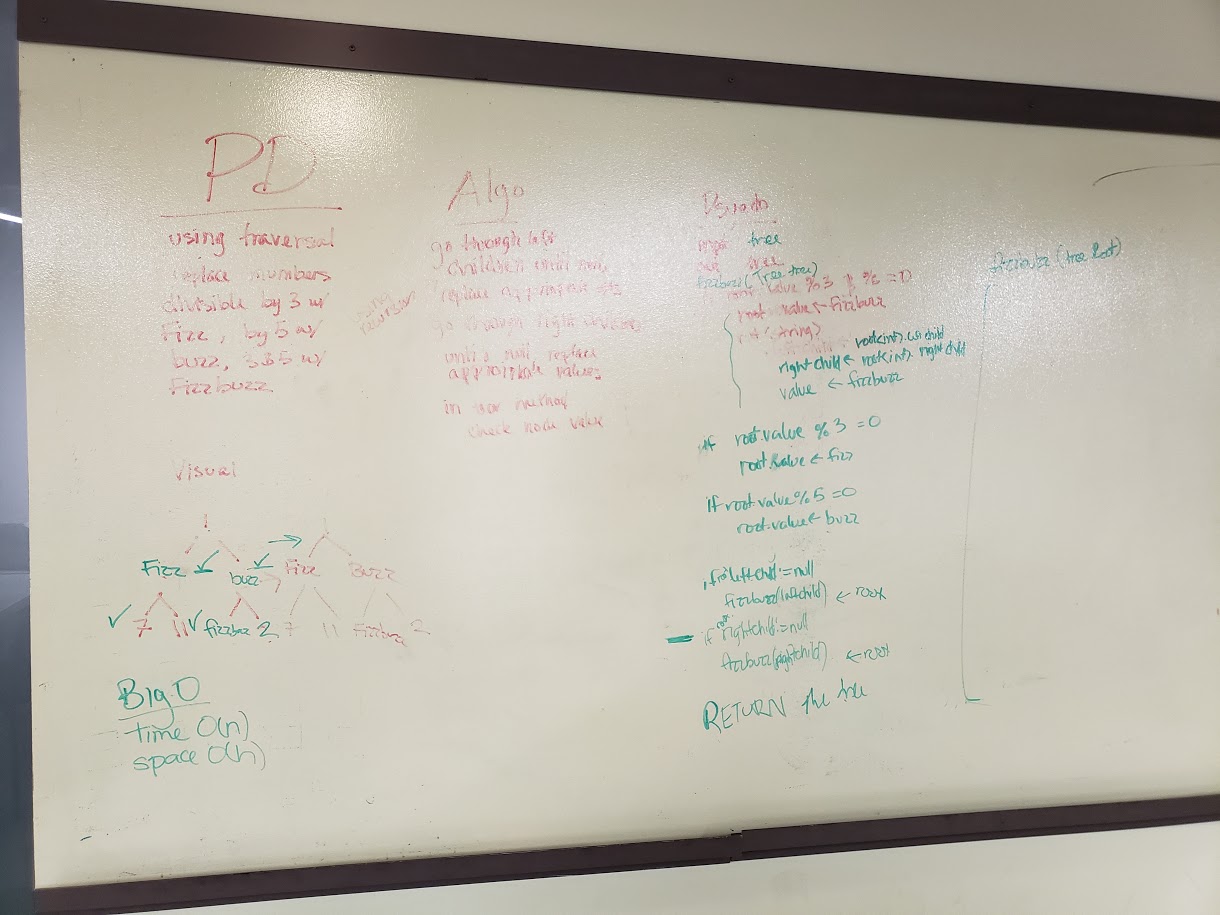 PD
using traversal
replace numbers
divisible by 3 w/
Fizz, by 5 w/
buzz, 3&5 w/
Fizzbuzz
Visual
1
Fizz buzz Fizz Buzz
7 11 fizzbuz 2 7 11 Fizzbuzz 2
Big O
time O(n)
space O(n)
Algo
go through left
children until null,
replace appropriate
using
recursion
go through right children
until null, replace
appropriate values
in own method
check node value
tree
tree
fizzbuzz(Tree tree)
value %3 % = 0
root value ← fizzbuzz
(string)
root(int).left child
right child ← root(int).right child
value ← fizzbuzz
if root.value %3 = 0
root.value ← fizz
if root.value%5 = 0
root.value← buzz
if left child != null
fizzbuzz(leftchild) ← root
if root rightchild != null
fizzbuzz(rightchild) ← root
RETURN the tree
fizzbuzz (tree Root)